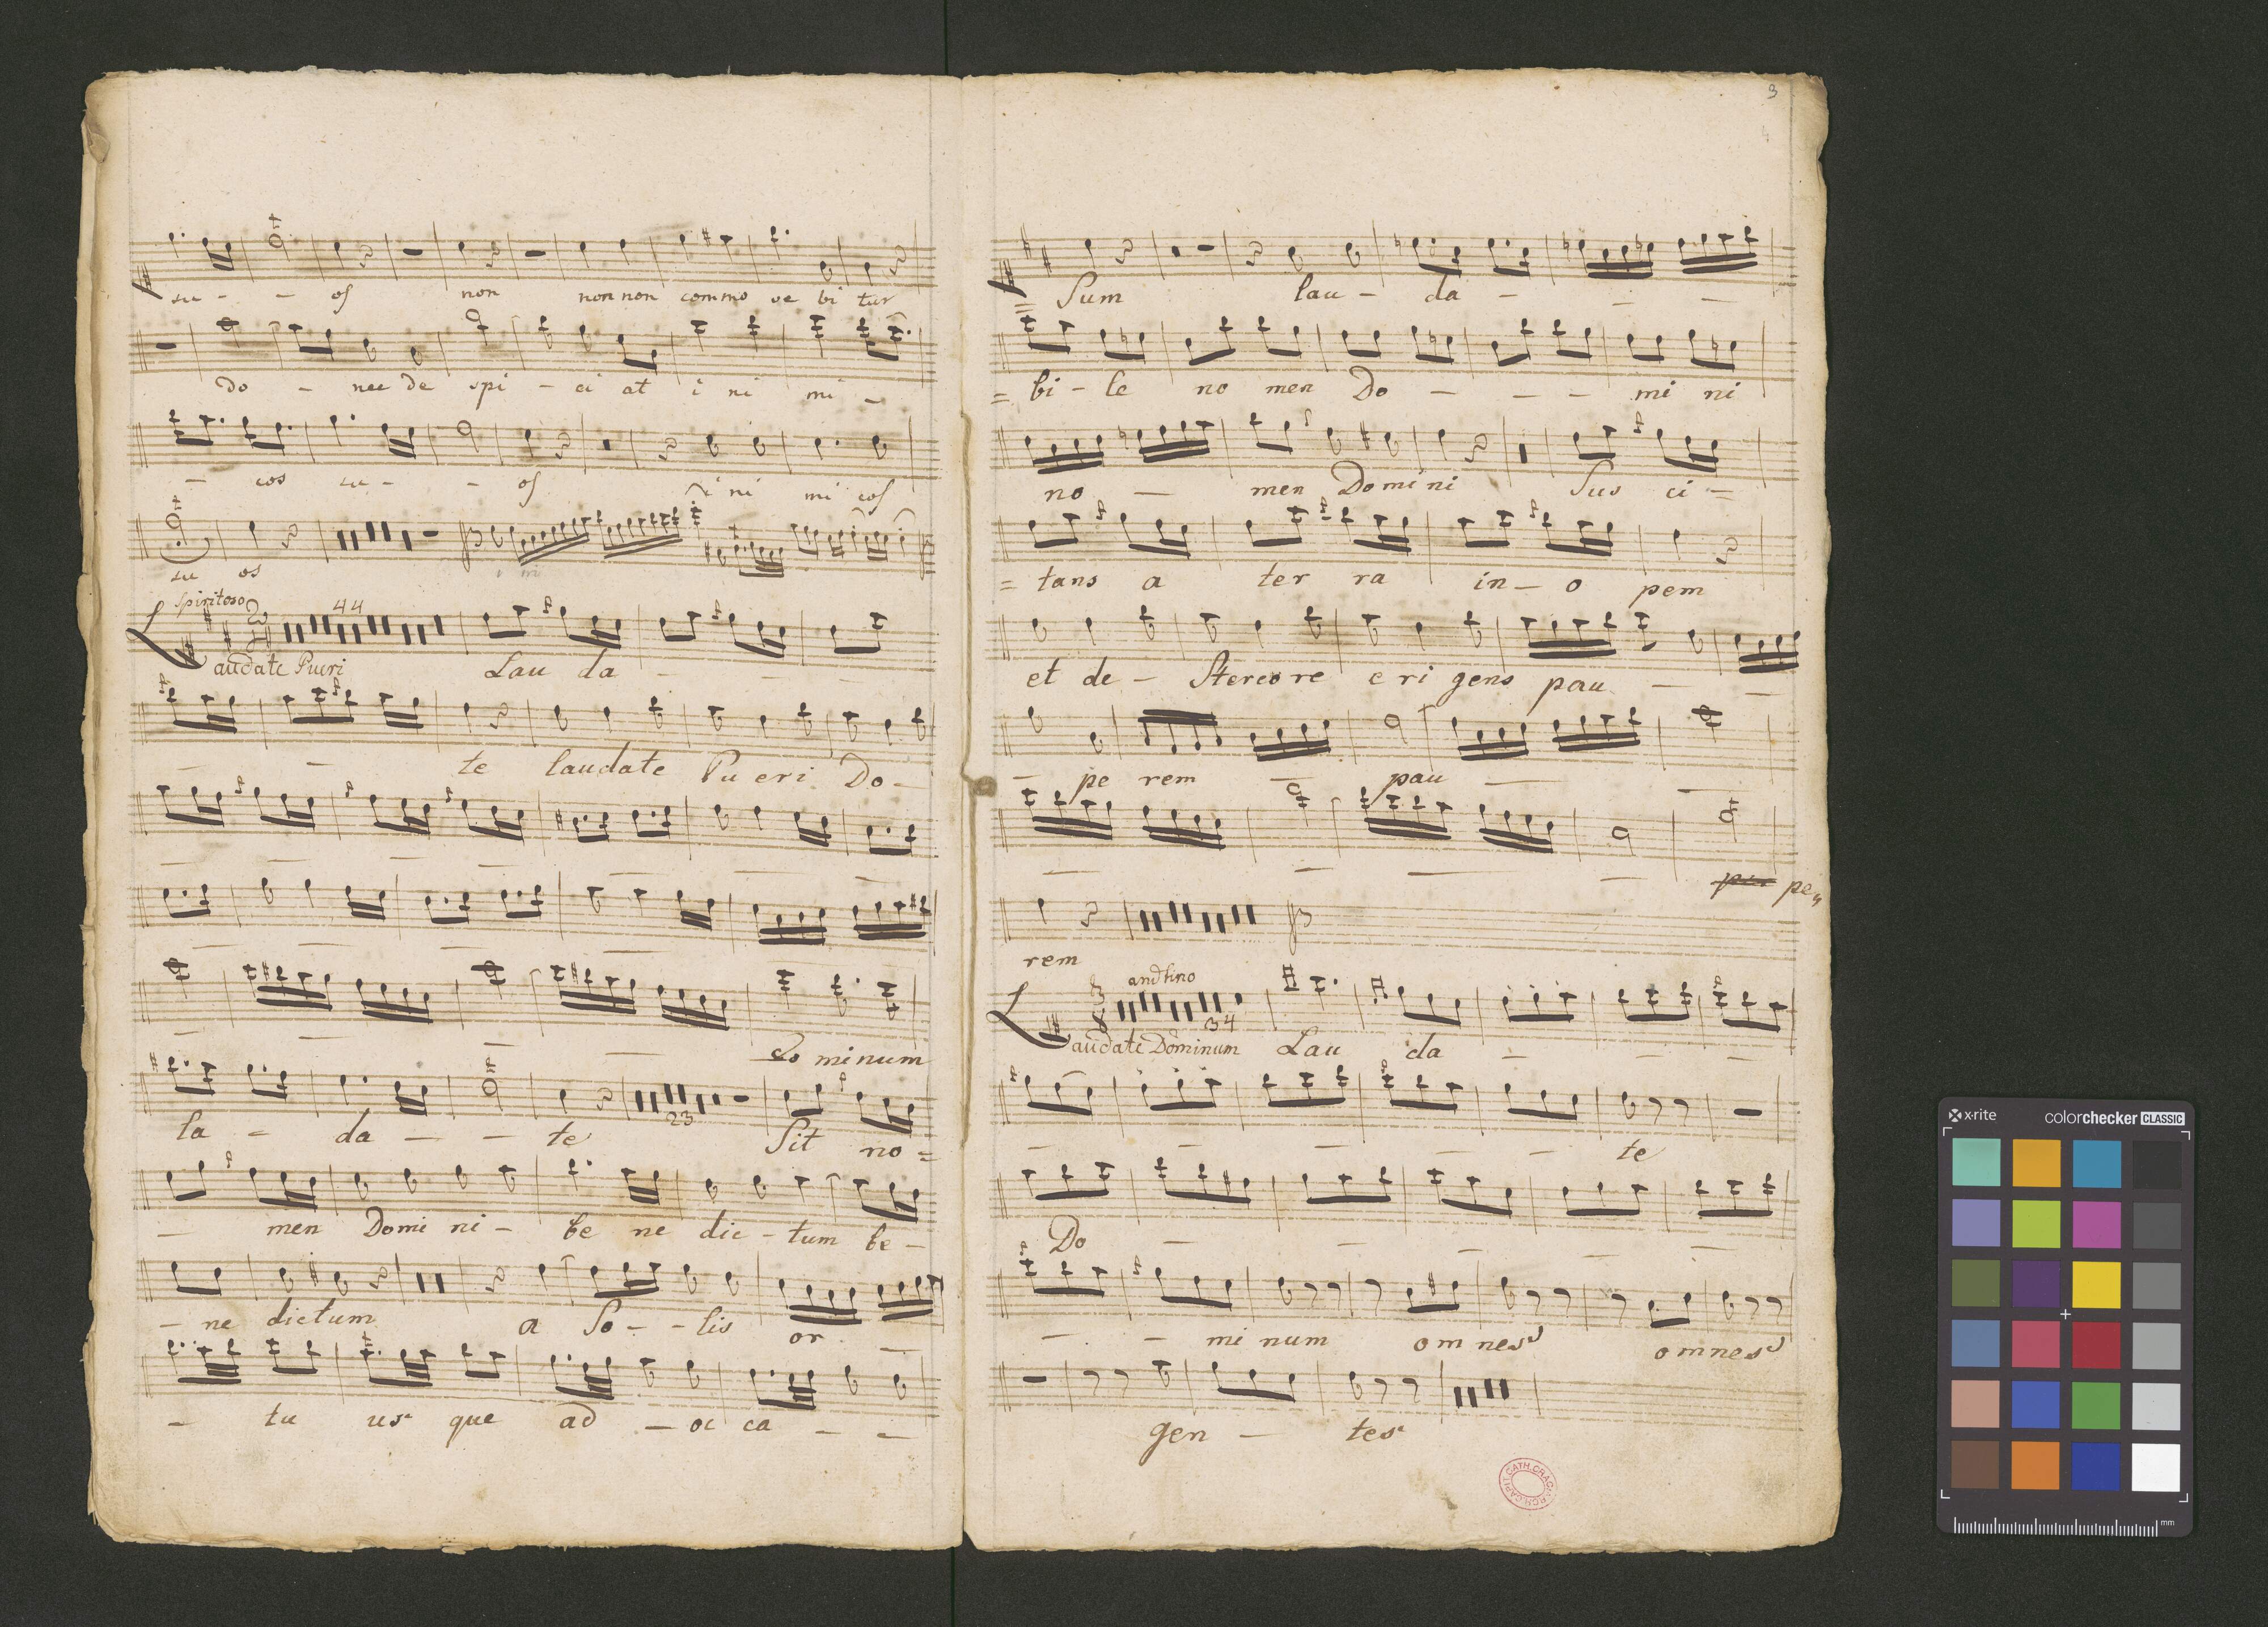 su - - os non non non commo ve bi tur
Do - nec de spi - ci at i ni mi -
- cos su - - os i ni mi cos
su os
Spiritoso
44
Laudate Pueri Lau da - - -
- - te laudate Pu eri Do -
- - - - - -
- - -
- - - Do minum
23
la - da - - te Sit no =
- men Domi ni - be ne dic - tum be -
- ne dictum a So - - lis or -
- tu us que ad - oc ca - -
3
4
= Sum lau - da - - -
= bi - le no men Do - - - mi ni
no - men Domini Sus ci =
= tans a ter ra in - o pem
et de - Stercore e ri gens pau -
- pe rem - pau - -
- - - pe
rem
andtino
3
8
34
Laudate Dominum Lau da - - -
- - - - te
Do - - - - -
- - mi num omnes omnes
gen - tes
ARCH. CAPIT. CATH. CRAC.
x-rite
colorchecker CLASSIC
mm